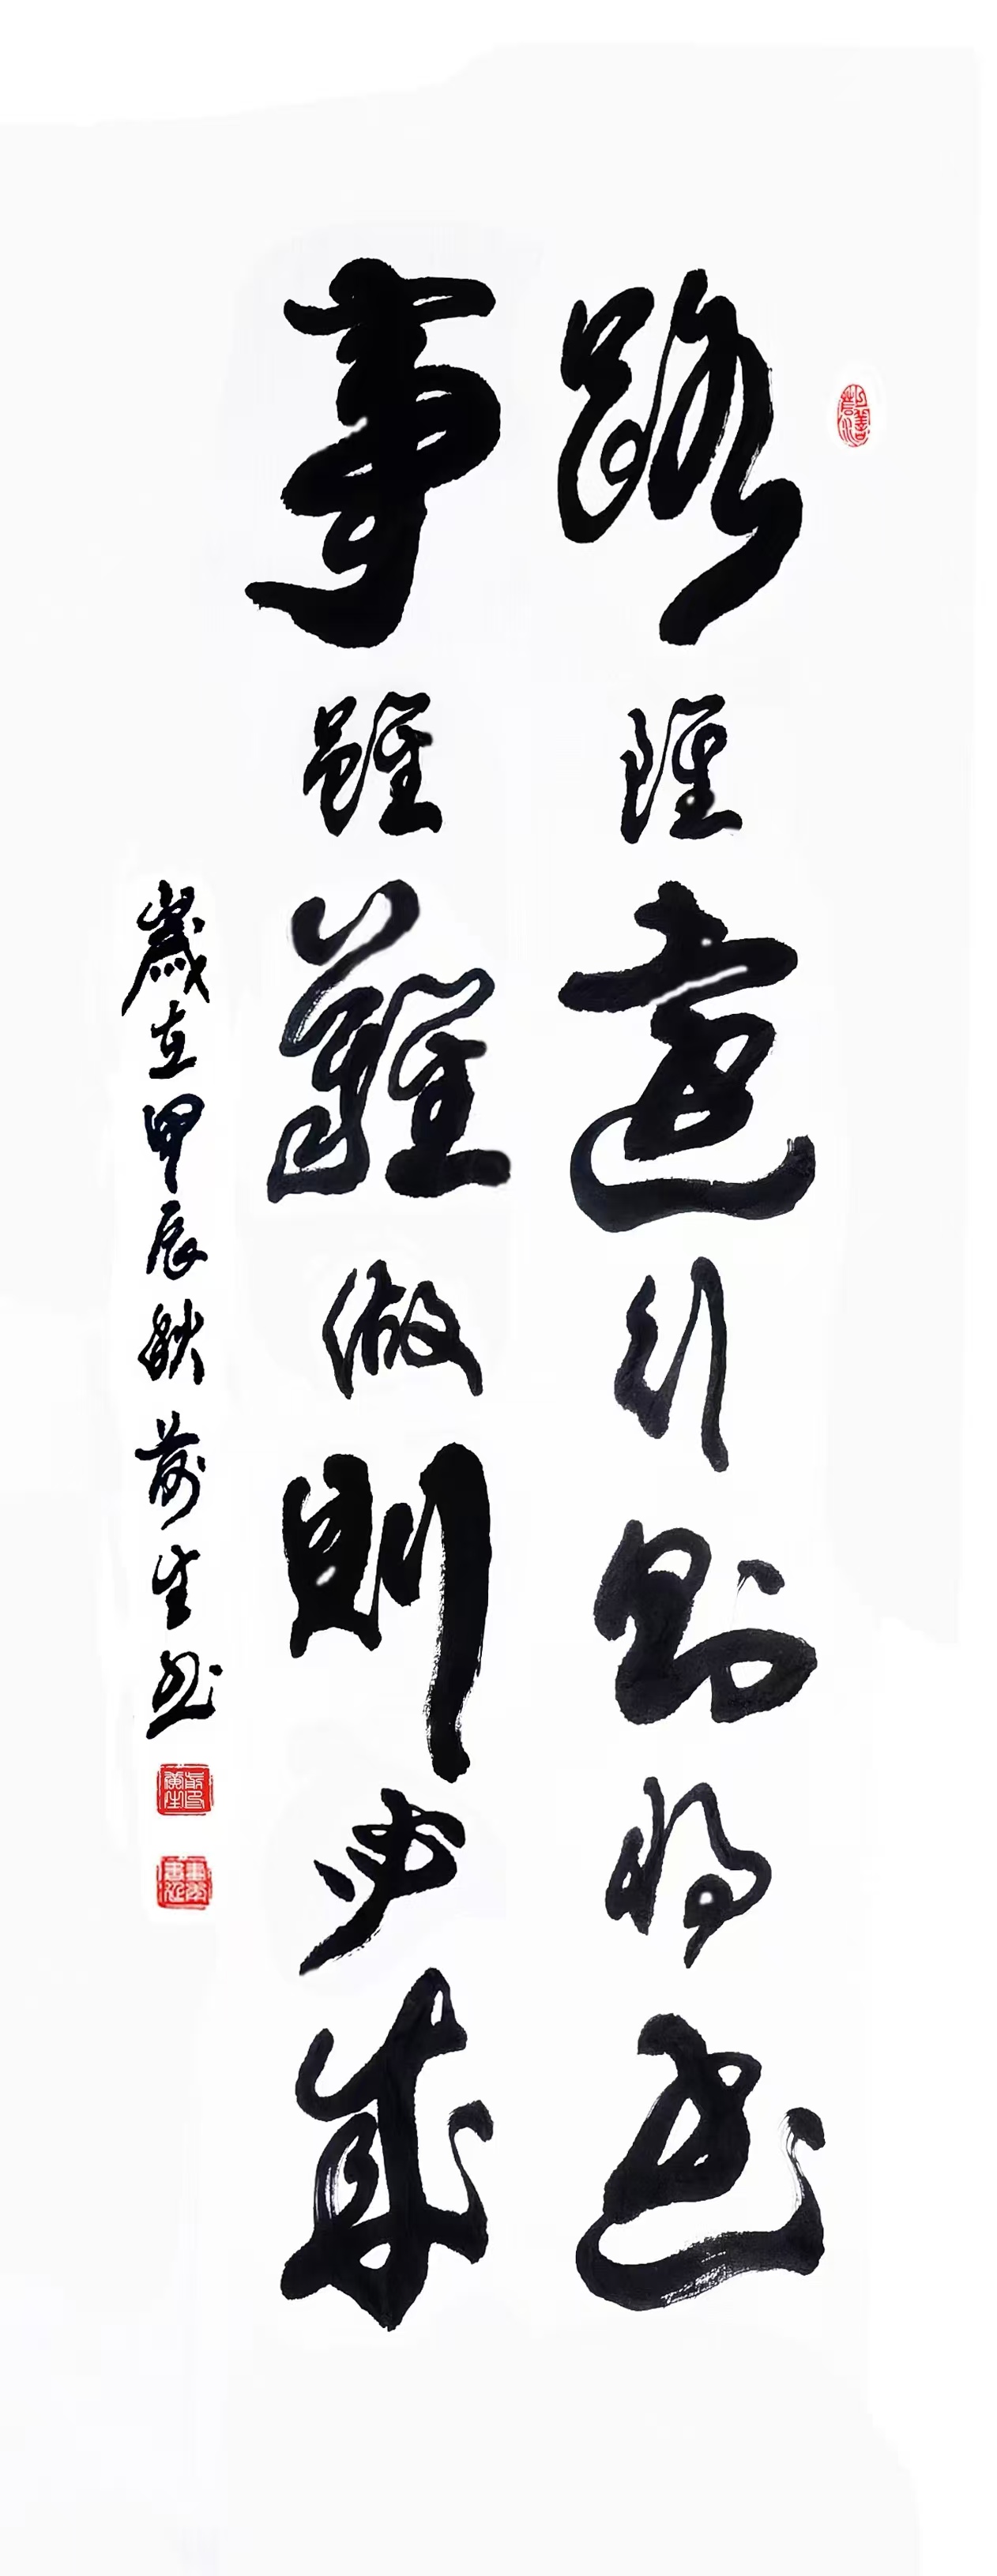 路雖遠行則將至
事雖難做則必成
歲在甲辰秋前生书